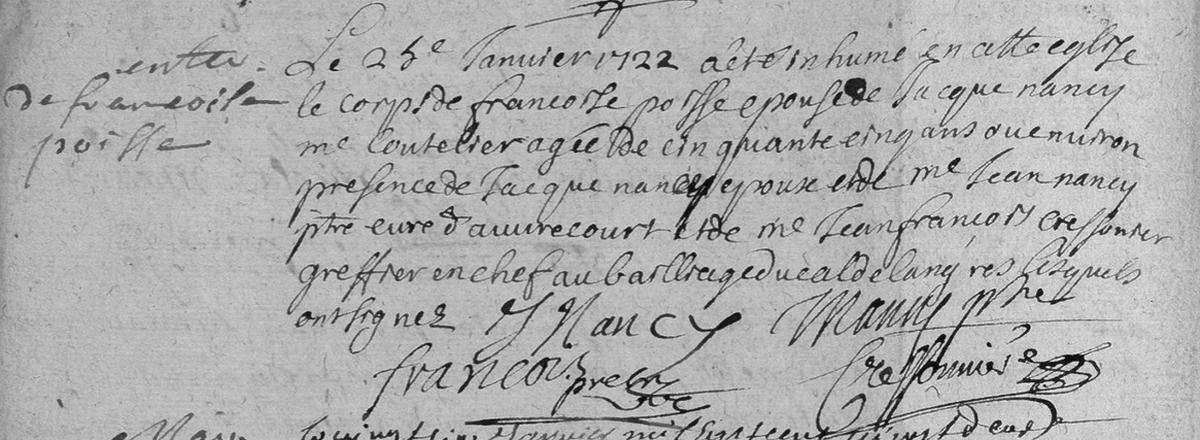 entte.
de francoise
poisse
Le 25e Janvier 1722 a été inhumé en cette eglise
le corps de francoise poisse epouse de Jacque nancy
me Coutelier agée de cinquante cinq ans ou environ
presence de Jacque nancy epoux et de me Jean nancy
ptre curé d'auvrecourt et de me Jean francois cressonier
greffier en chef au bailliage ducal de langres lesquels
ont signez J Nancy Nancy ptre
francois pretre Cressonnier
Janvier mil sept cent vingt deux